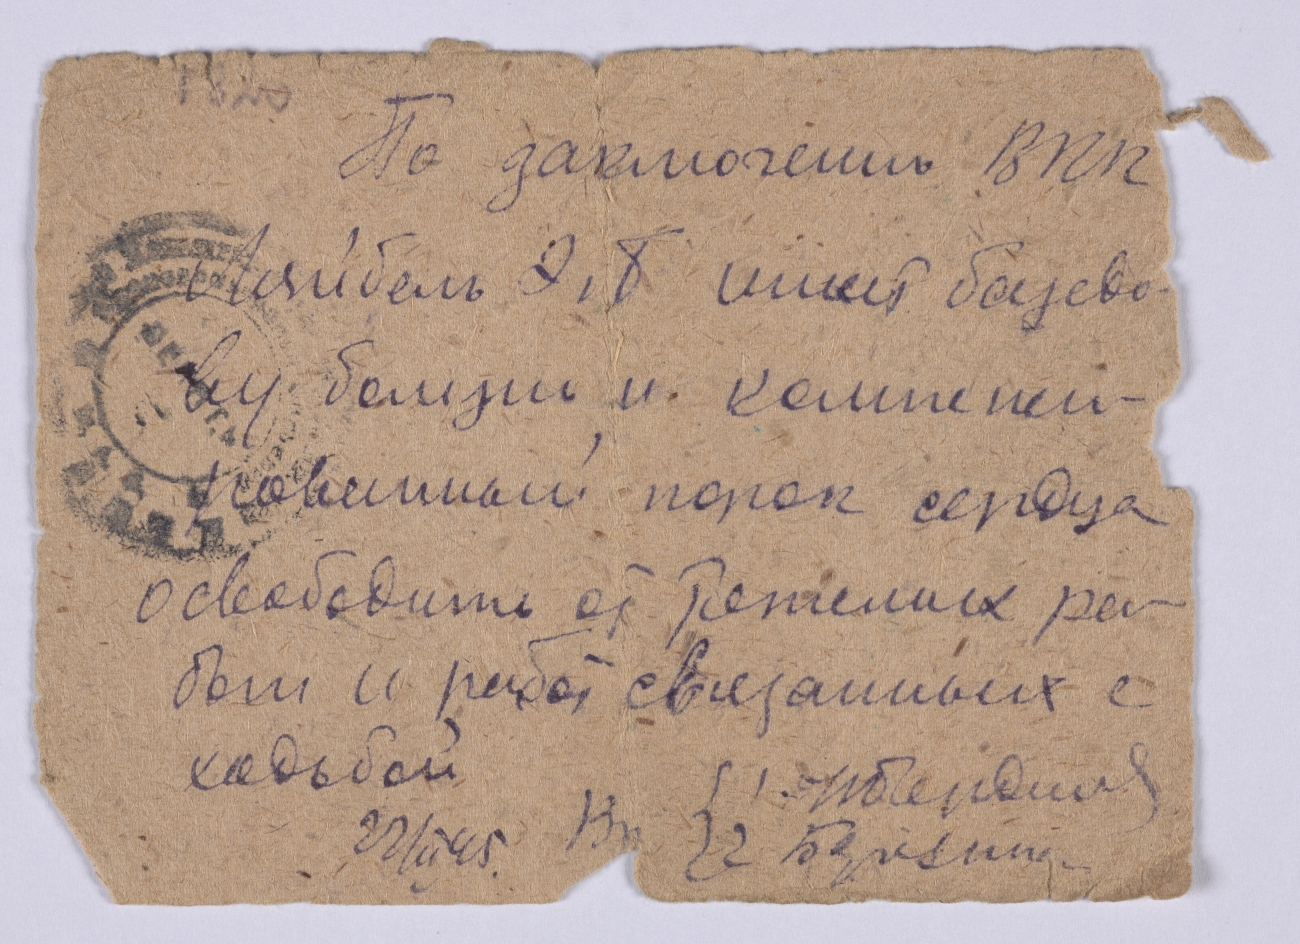 По заключению ВКК
Лейбель Э.Т имеет базедо-
ву болезнь и компенси-
рованный порок сердца
освободить от тяжелых ра-
бот и работ связанных с
ходьбой
22/III 45. Вр